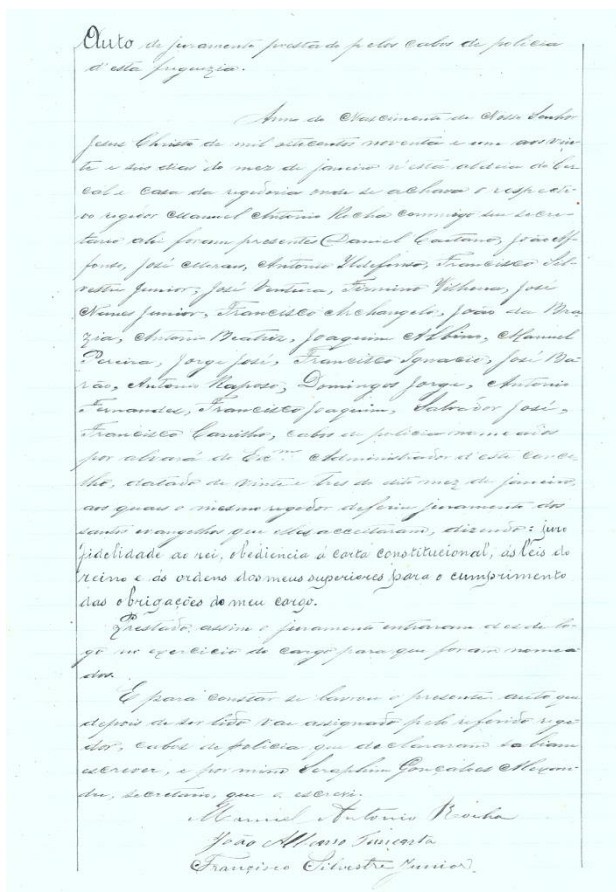 Auto de juramento prestado pelos cabos de policia
d'esta freguezia.
Anno do Nascimento de Nosso Senhor
Jesus Christo de mil oitocentos noventa e um aos vin-
te e seis dias do mez de janeiro n'esta aldeia do Cer-
cal e casa da regedoria onde se achava o respecti-
vo regedor Manuel Antonio Rocha commigo seu secre-
tario ahi foram presentes Daniel Caetano, João Af-
fonso, José, Antonio Ildefonso, Francisco Sil-
vestre Junior, José Ventura, Firmino Vilhena, José
Nunes Junior, Francisco Archangelo, João da Bra-
zia, Antonio Beatriz, Joaquim Albino, Manuel
Pereira, Jorge José, Francisco Ignacio, José Ba-
rão, Antonio Raposo, Domingos Jorge, Antonio
Fernandes, Francisco Joaquim, Salvador José,
Francisco Carrilho, cabos de policia nomeados
por alvará do Exmo Administrador d'este conce-
lho, datado de vinte e tres do dito mez de janeiro,
aos quaes o mesmo regedor deferiu juramento dos
santos evangelhos que elles acceitaram, dizendo: juro
fidelidade ao rei, obediencia á carta constitucional, ás leis do
reino e ás ordens dos meus superiores para o cumprimento
das obrigações do meu cargo.
Prestado assim o juramento entraram desde lo-
go no exercicio do cargo para que foram nomea-
dos.
E para constar se lavrou o presente auto que
depois de ser lido vae assignado pelo referido rege-
dor, cabos de policia que declararam sabiam
escrever, e por mim Seraphim Gonçalves Alexan-
dre, secretario, que o escrevi.
Manuel Antonio Rocha
João Affonso Pimenta
Francisco Silvestre Junior